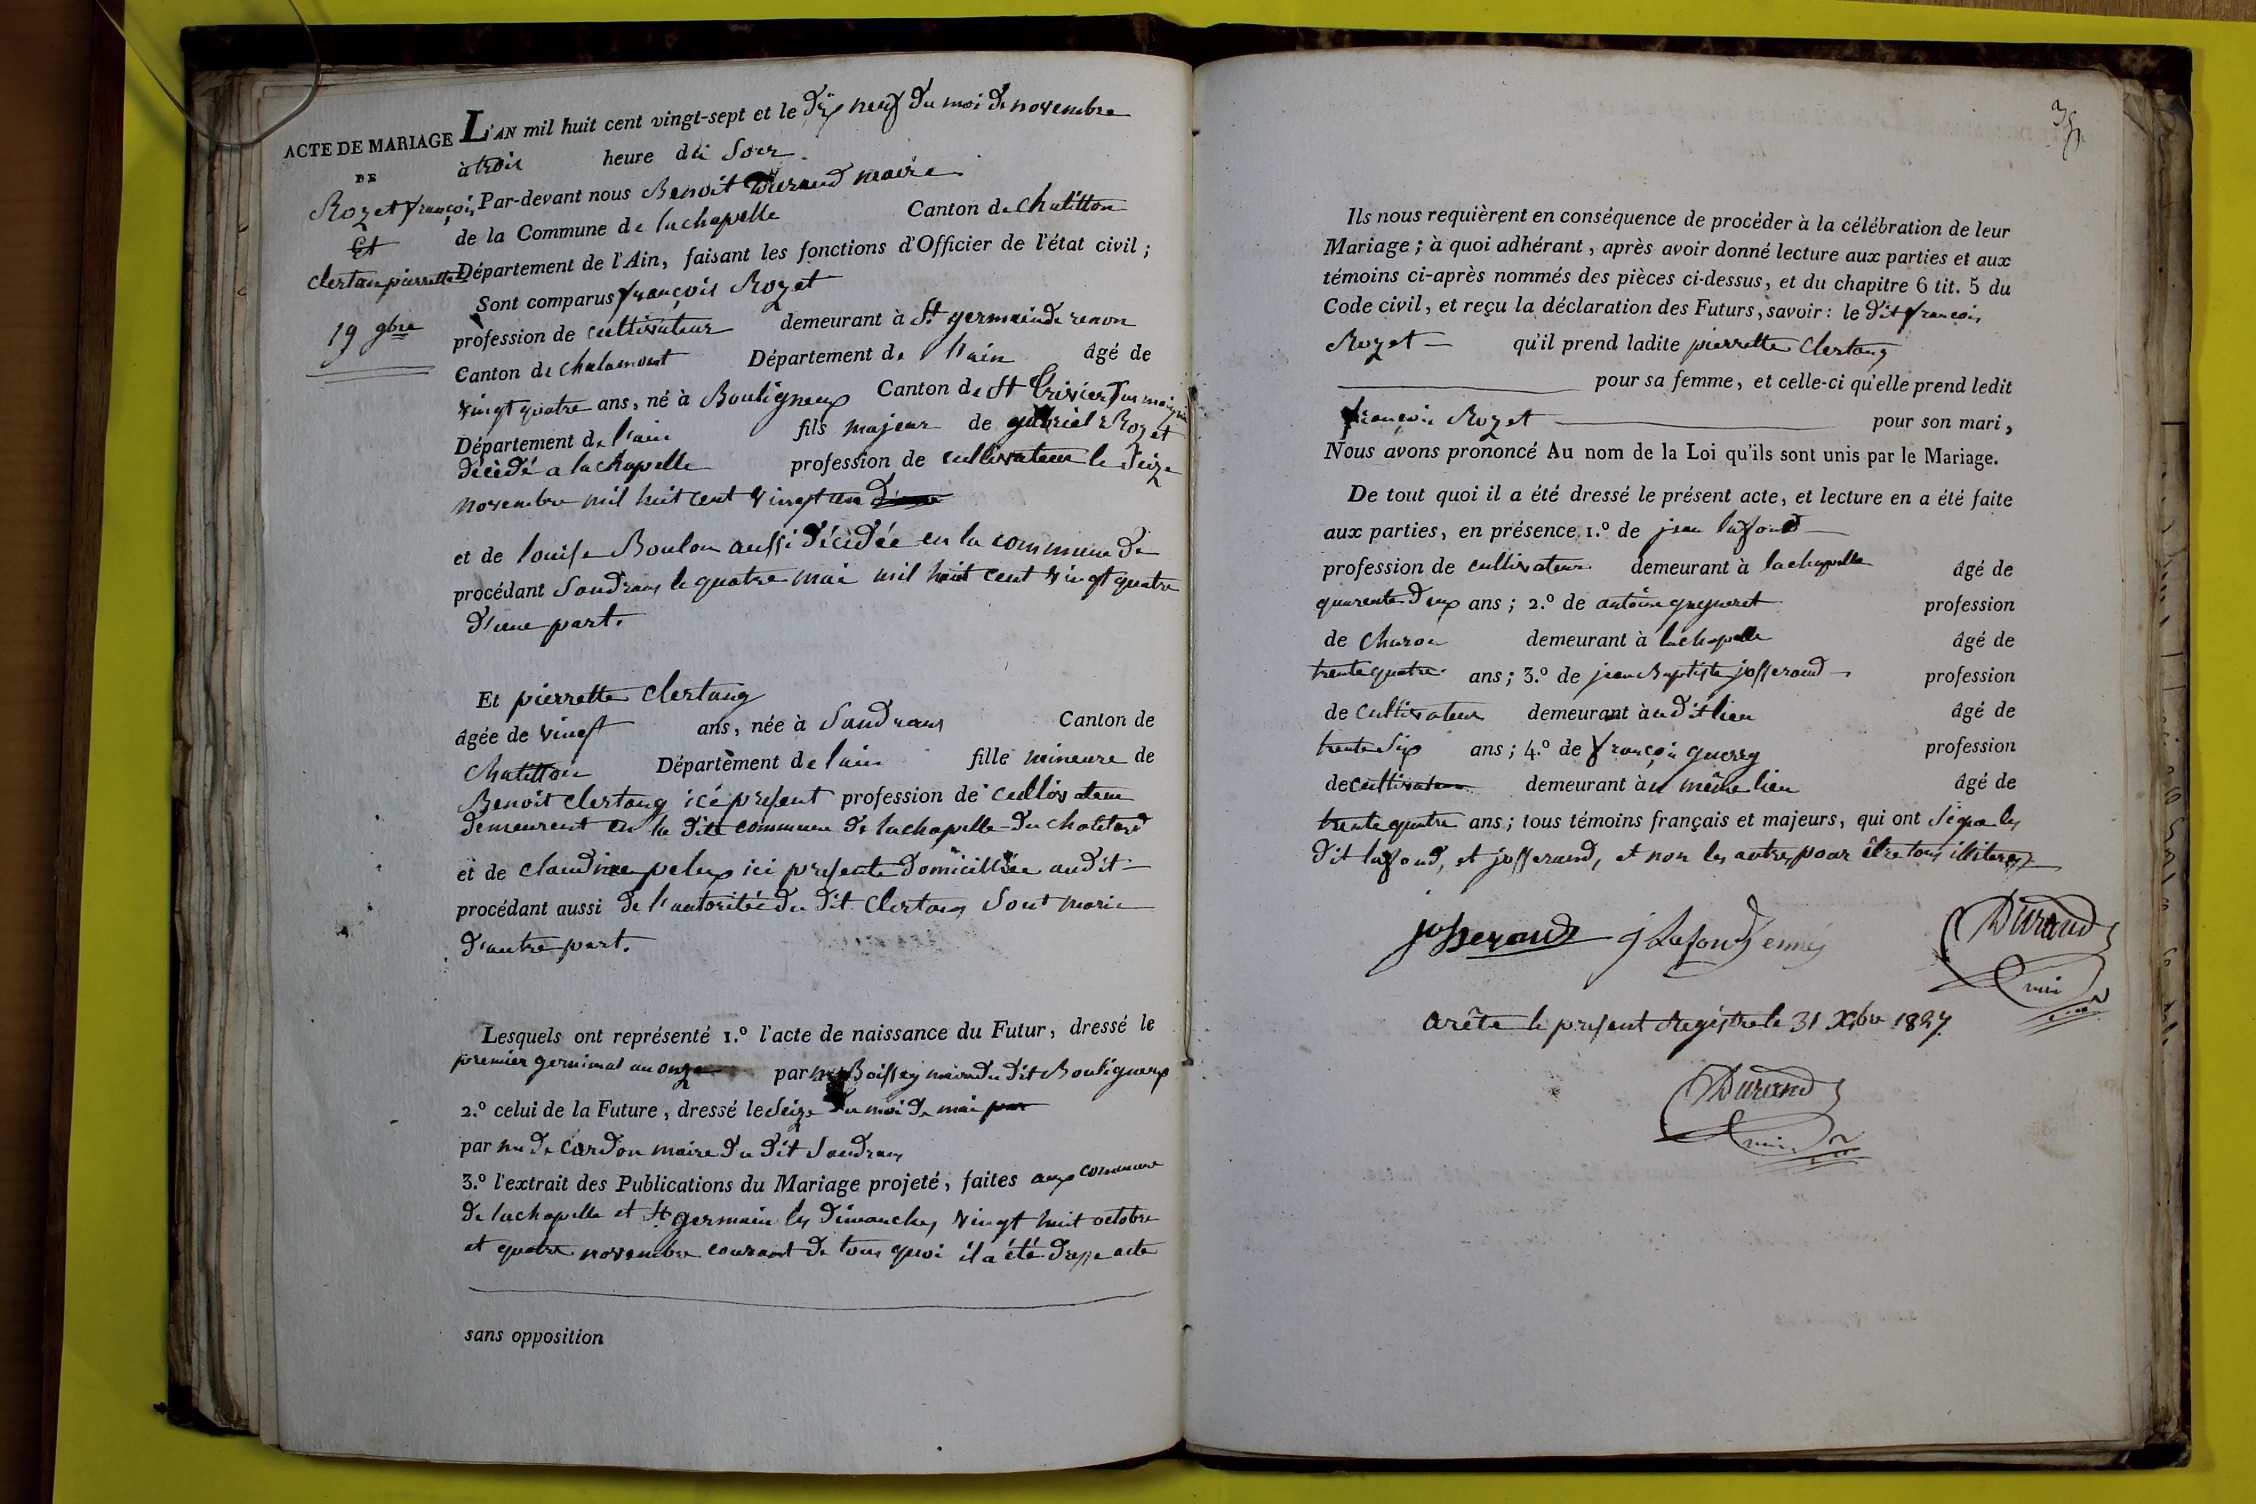 ACTE DE MARIAGE
DE
Rozet françois
Et
Clertan pierrette
19 9bre
L'AN mil huit cent vingt-sept et le dix neuf du moi de novembre
à trois heure du Soir
Par-devant nous Benoit Durand maire
de la Commune de lachapelle Canton de Chatillon
Département de l'Ain, faisant les fonctions d'Officier de l'état civil ;
Sont comparus françois Rozet
profession de cultivateur demeurant à St germain de renon
Canton de chalamont Département de l'ain âgé de
vingt quatre ans, né à Bouligneux Canton de St Trivier Sur moignin
Département de l'ain fils majeur de gabriel Rozet
décédé a lachapelle profession de cultivateur le Seize
novembre mil huit cent vingt un
et de louise Boulon aussi décédée en la commune de
procédant Sandrans le quatre mai mil huit cent vingt quatre
d'une part.
Et pierrette Clertang
âgée de vingt ans, née à Sandrans Canton de
Chatillon Département de lain fille mineure de
Benoit Clertang icé present profession de cultivateur
demeurent en la dite commune de lachapelle-du chatelard
et de claudine pelux ici presente domicilliée audit
procédant aussi de l'autoritée du dit Clertang Sont marie
d'autre part.
Lesquels ont représenté 1.º l'acte de naissance du Futur, dressé le
premier germinal an onze par mr Boissey maire du dit Bouligneux
2.º celui de la Future, dressé le Seize du moi de mai par
par mr de Cardon maire du dit Sandrans
3.º l'extrait des Publications du Mariage projeté, faites aux commune
de lachapelle et St germain les dimanches vingt huit octobre
et quatre novembre courant de tous quoi il a été dresse acte
sans opposition
38
Ils nous requièrent en conséquence de procéder à la célébration de leur
Mariage ; à quoi adhérant, après avoir donné lecture aux parties et aux
témoins ci-après nommés des pièces ci-dessus, et du chapitre 6 tit. 5 du
Code civil, et reçu la déclaration des Futurs, savoir : le dit françois
Rozet qu'il prend ladite pierrette Clertang
pour sa femme, et celle-ci qu'elle prend ledit
françois Rozet pour son mari,
Nous avons prononcé Au nom de la Loi qu'ils sont unis par le Mariage.
De tout quoi il a été dressé le présent acte, et lecture en a été faite
aux parties, en présence 1.º de jean lafond
profession de cultivateur demeurant à lachapelle âgé de
quarente deux ans ; 2.º de antoine gueyneret profession
de charon demeurant à lachapelle âgé de
trente quatre ans ; 3.º de jean Baptiste josserand profession
de cultivateur demeurant à u dit lieu âgé de
trente Six ans ; 4.º de françois guerry profession
de cultivateur demeurant à u même lieu âgé de
trente quatre ans ; tous témoins français et majeurs, qui ont Signé les
dit lafond, et josserand, et non les autres pour être tous illiterez
josserand j Lafond enné Durand
mire
Arête le present Registre le 31 Xbre 1827
Durand
mire